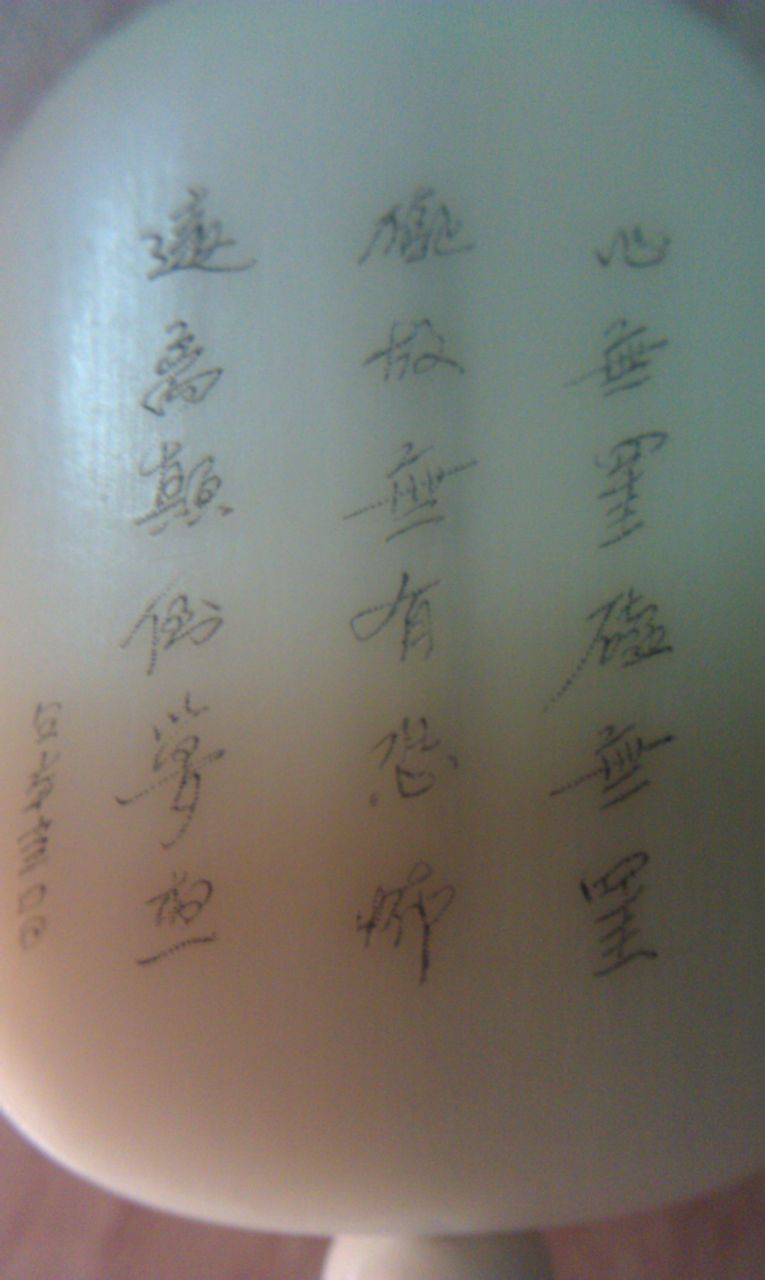 心無罣礙無罣
礙故無有恐怖
遠離顛倒夢想